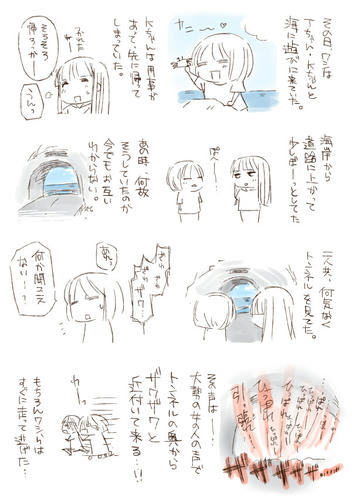 その日、ワシは
Tちゃん・Kちゃんと
海に遊びに来ていた。
Kちゃんは用事が
あって、先に帰って
しまっていた。
つかれた
そろそろ
帰ろっかー
うんっ
海岸から
道路に上がって
少しぼーっとしてた
ぼへ〜
あの時、何故
そうしていたのか
今でもお互い
わからない。
二人共、何気なく
トンネルを見てた。
ざわざわ
あれ?
何か聞コエ
ない…?
ひっぱれ
ひっぱれ
ひっぱれ
引ッ張レ
ザザザザ
その声は…
大勢の女の人の声で
トンネルの奥から
ザワザワと
近付いて来る…!!
わーっ
もちろんワシらは
すぐに走って逃げた…